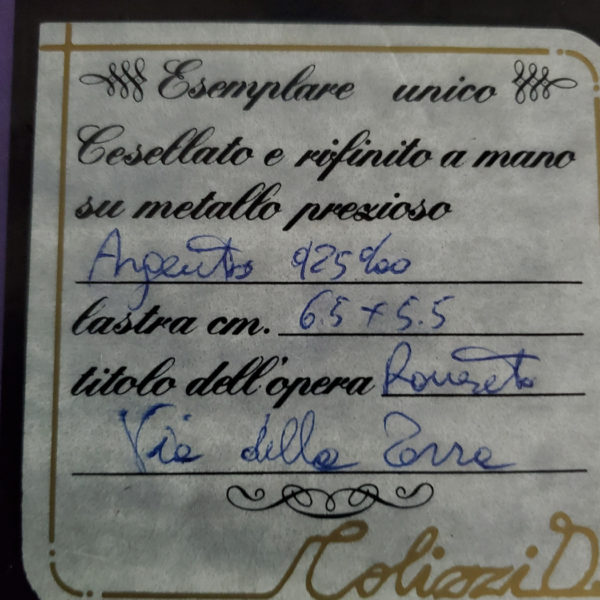 Esemplare unico
Cesellato e rifinito a mano
su metallo prezioso
Argento 925‰
lastra cm. 6.5 x 5.5
titolo dell'opera Rovereto
Via della Terra
Colizzi D